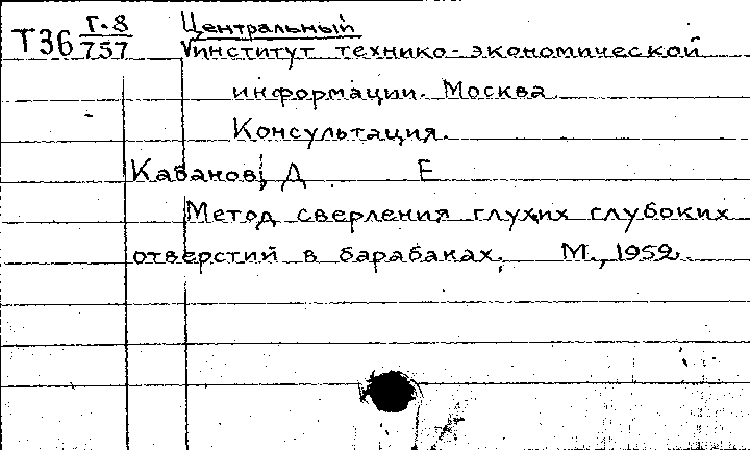 Т36 Г-8/757 Центральный
институт технико-экономической
информации. Москва
Консультация.
Кабанов, Д Е
Метод сверления глухих глубоких
отверстий в барабанах. М., 1959.